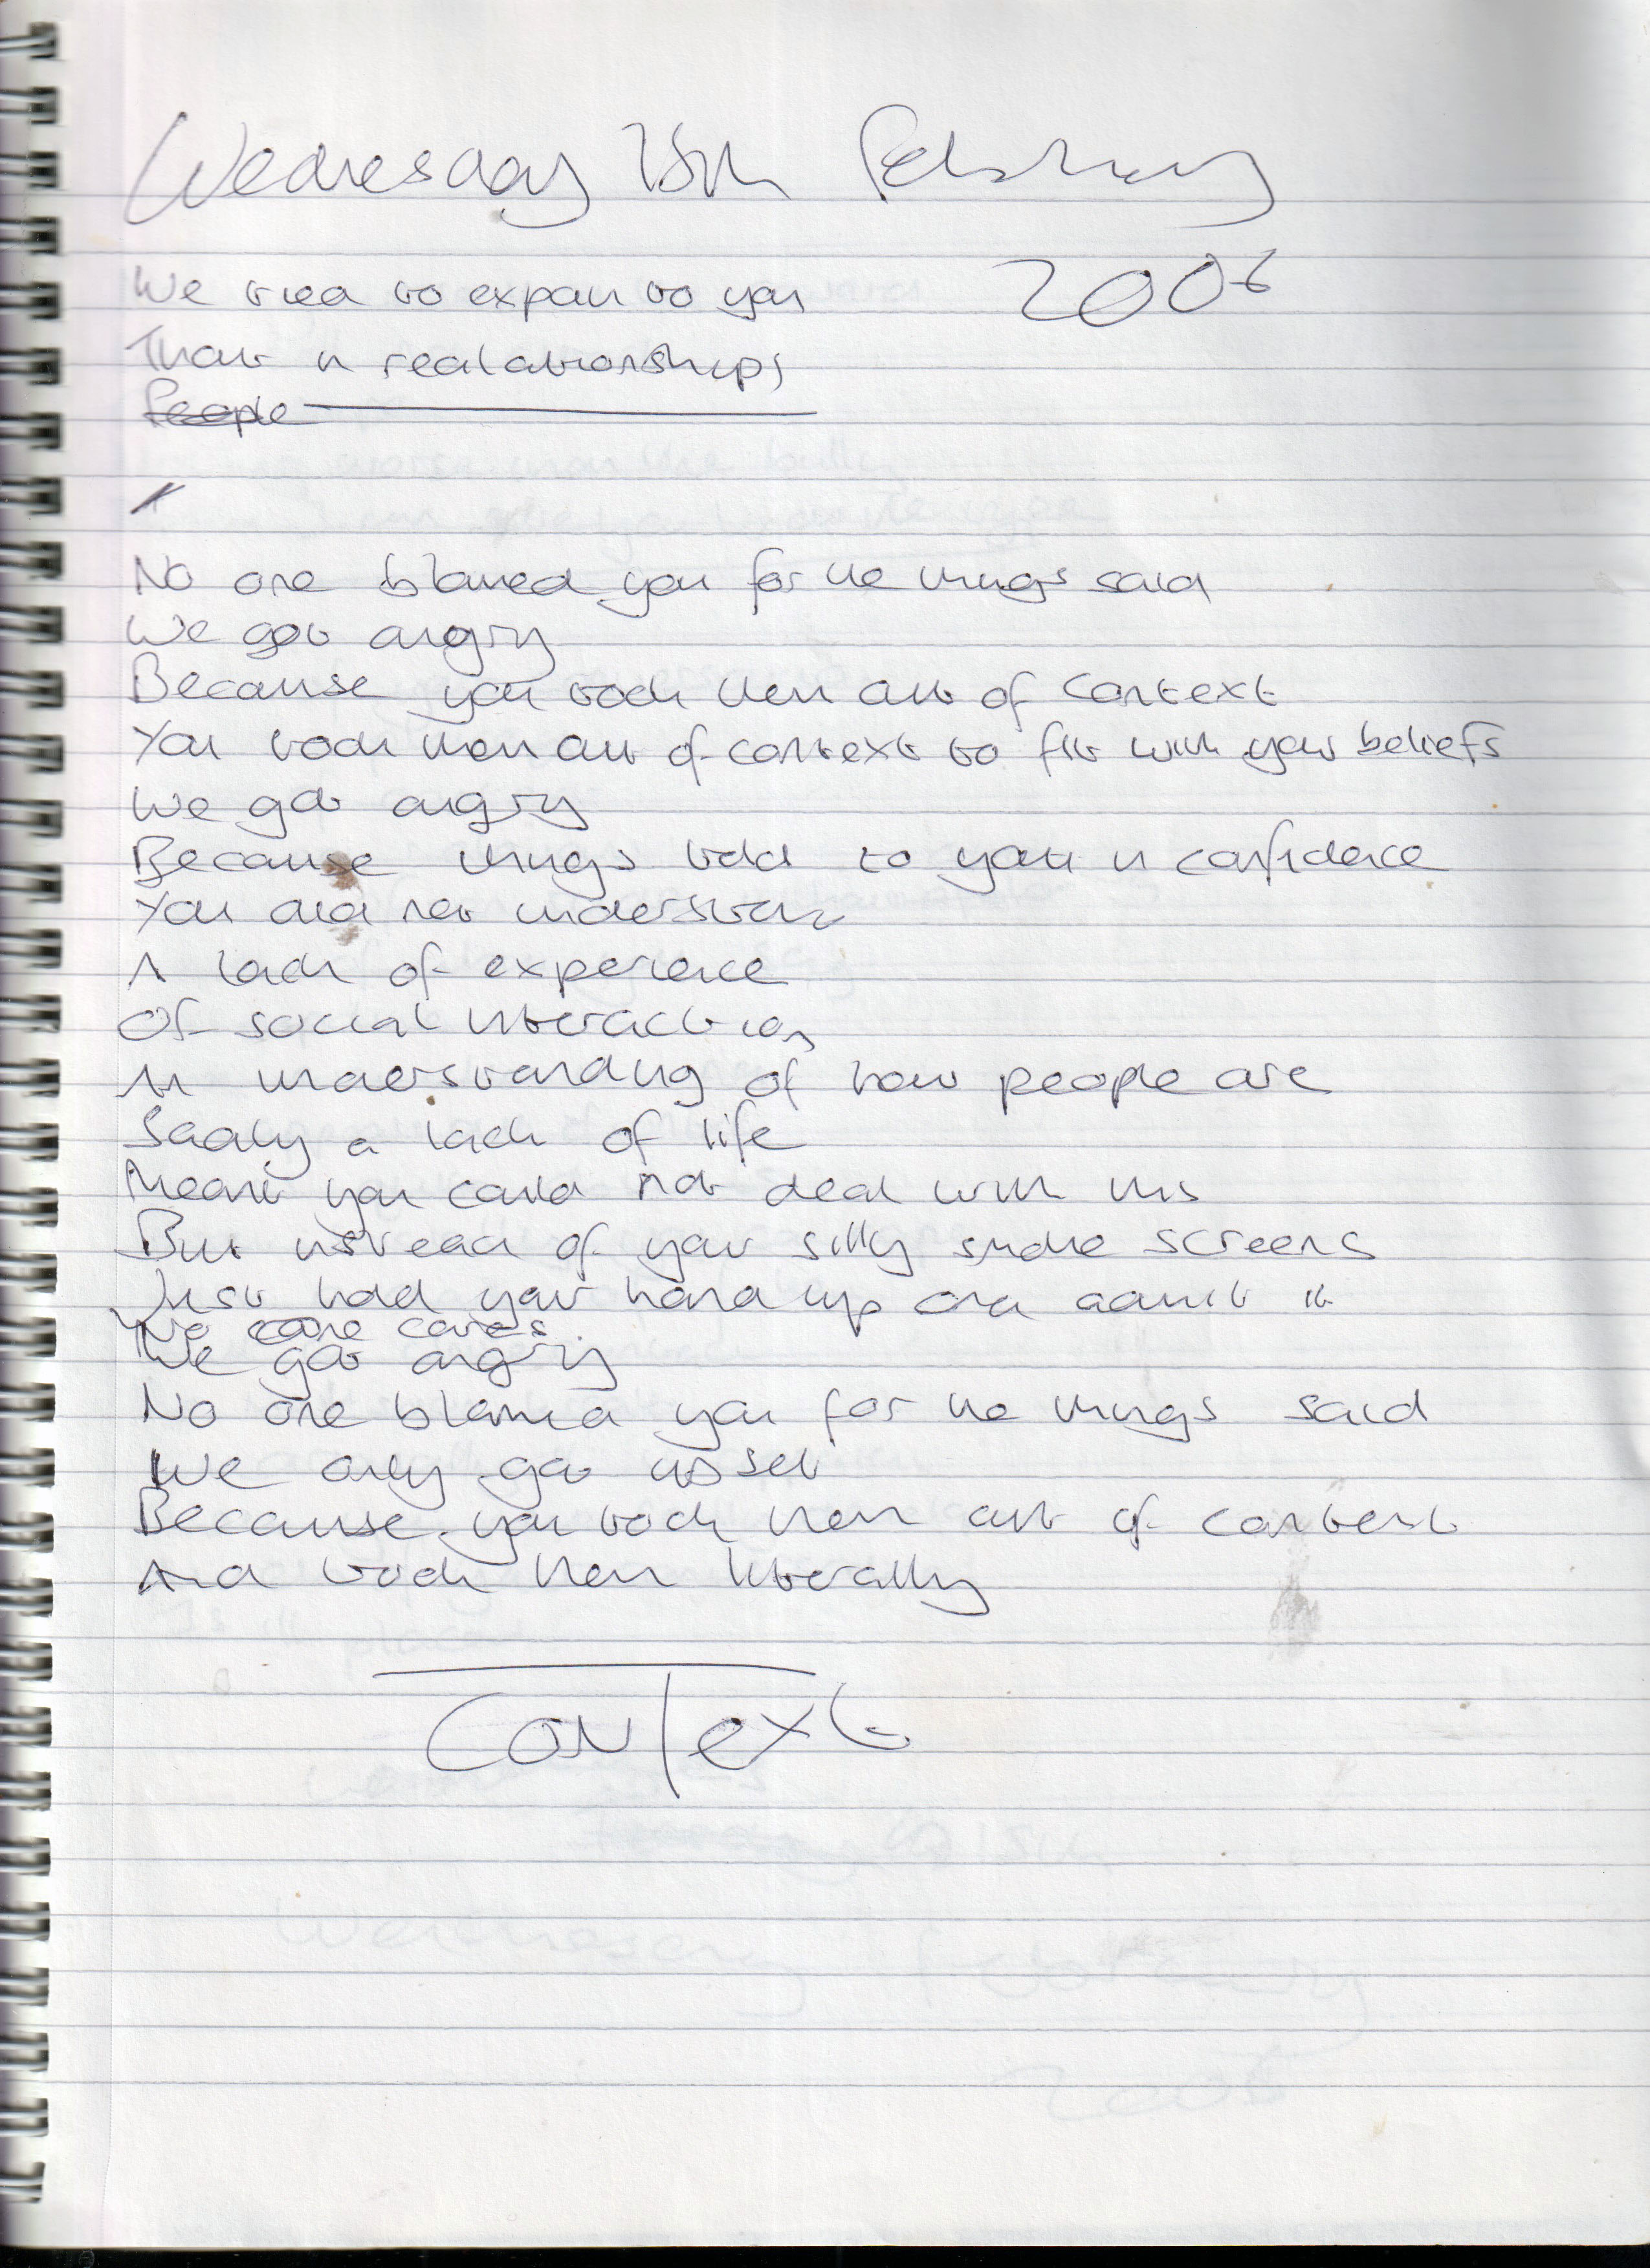 Wednesday 15th February
2006
We tried to explain to you
That in realationships
People
No one blamed you for the things said
We got angry
Because you took them out of context
You took them out of context to fit with your beliefs
We got angry
Because things told to you in confidence
You did not understand
A lack of experience
Of social interaction
An understanding of how people are
Sadly a lack of life
Meant you could not deal with this
But instead of your silly smoke screens
Just hold your hand up and admit it
No one cares
We got angry
No one blamed you for the things said
We only got upset
Because you took them out of context
And took them literally
Context